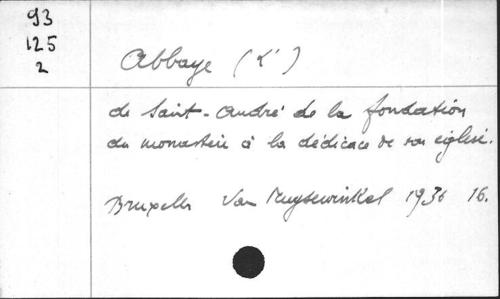 93
125
2
Abbaye (L')
de Saint-André de la fondation
du monastère à la dédicace de son église.
Bruxelles Van Muysewinkel 1936 16.